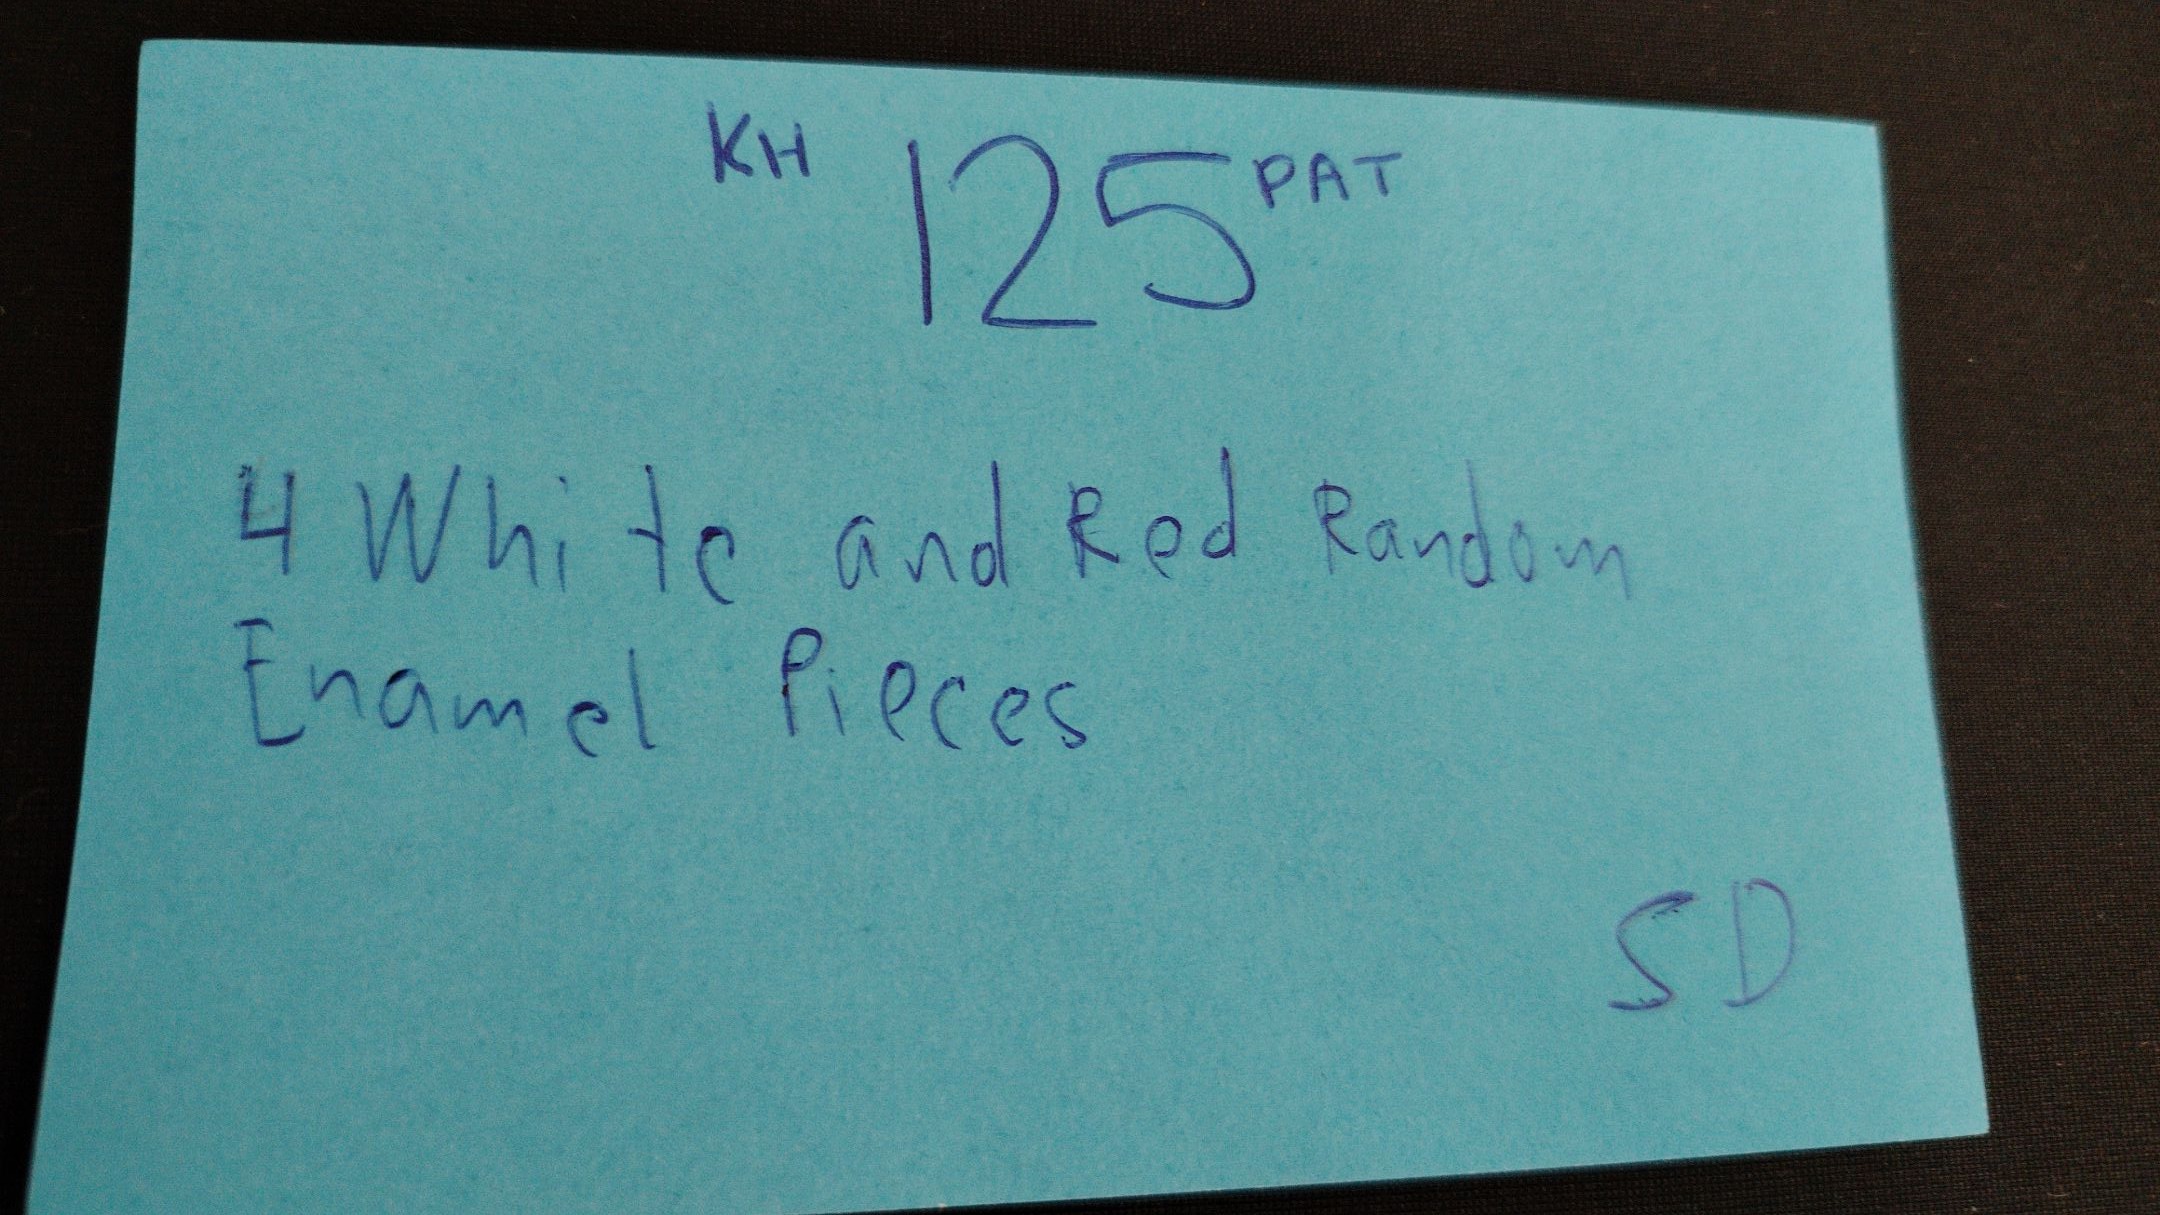 KH 125 PAT
4 White and Red Random
Enamel Pieces
SD